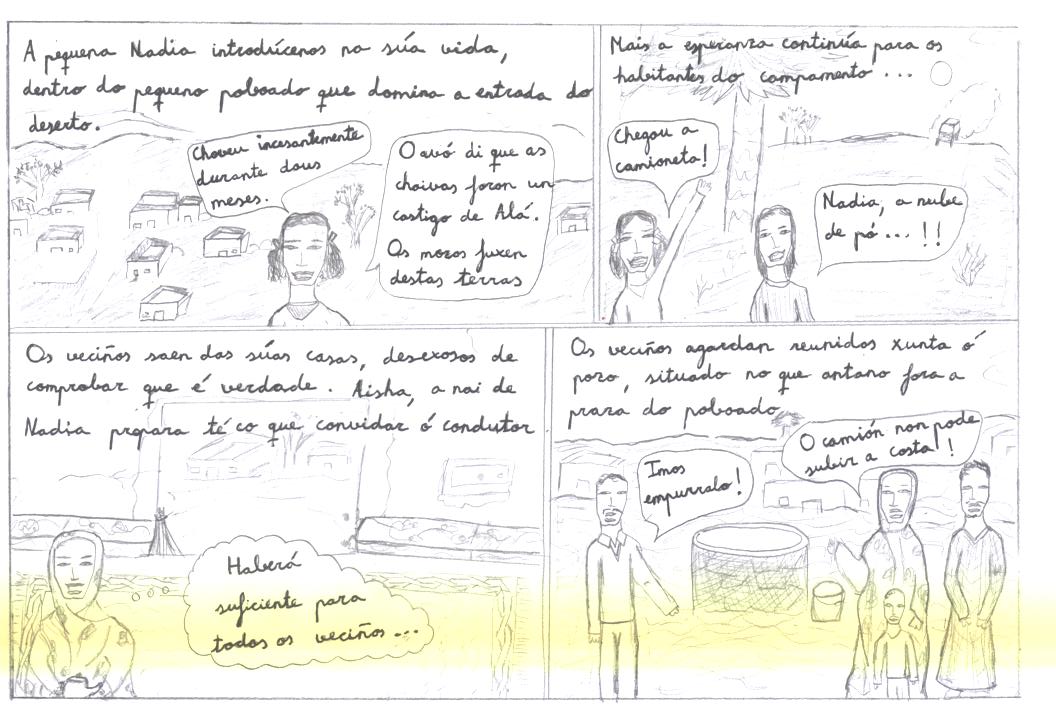 A pequena Nadia introdúcenos na súa vida,
dentro do pequeno poboado que domina a entrada do
deserto.
Choveu incesantemente
durante dous
meses.
O avó di que as
choivas foron un
castigo de Alá.
Os mozos fuxen
destas terras
Mais a esperanza continúa para os
habitantes do campamento ...
Chegou a
camioneta!
Nadia, a nube
de pó... !!
Os veciños saen das súas casas, desexosos de
comprobar que é verdade. Aisha, a nai de
Nadia prepara té co que convidar ó condutor.
Haberá
suficiente para
todos os veciños...
Os veciños agardan reunidos xunto ó
pozo, situado no que antano fora a
praza do poboado
Imos
empurralo!
O camión non pode
subir a costa!